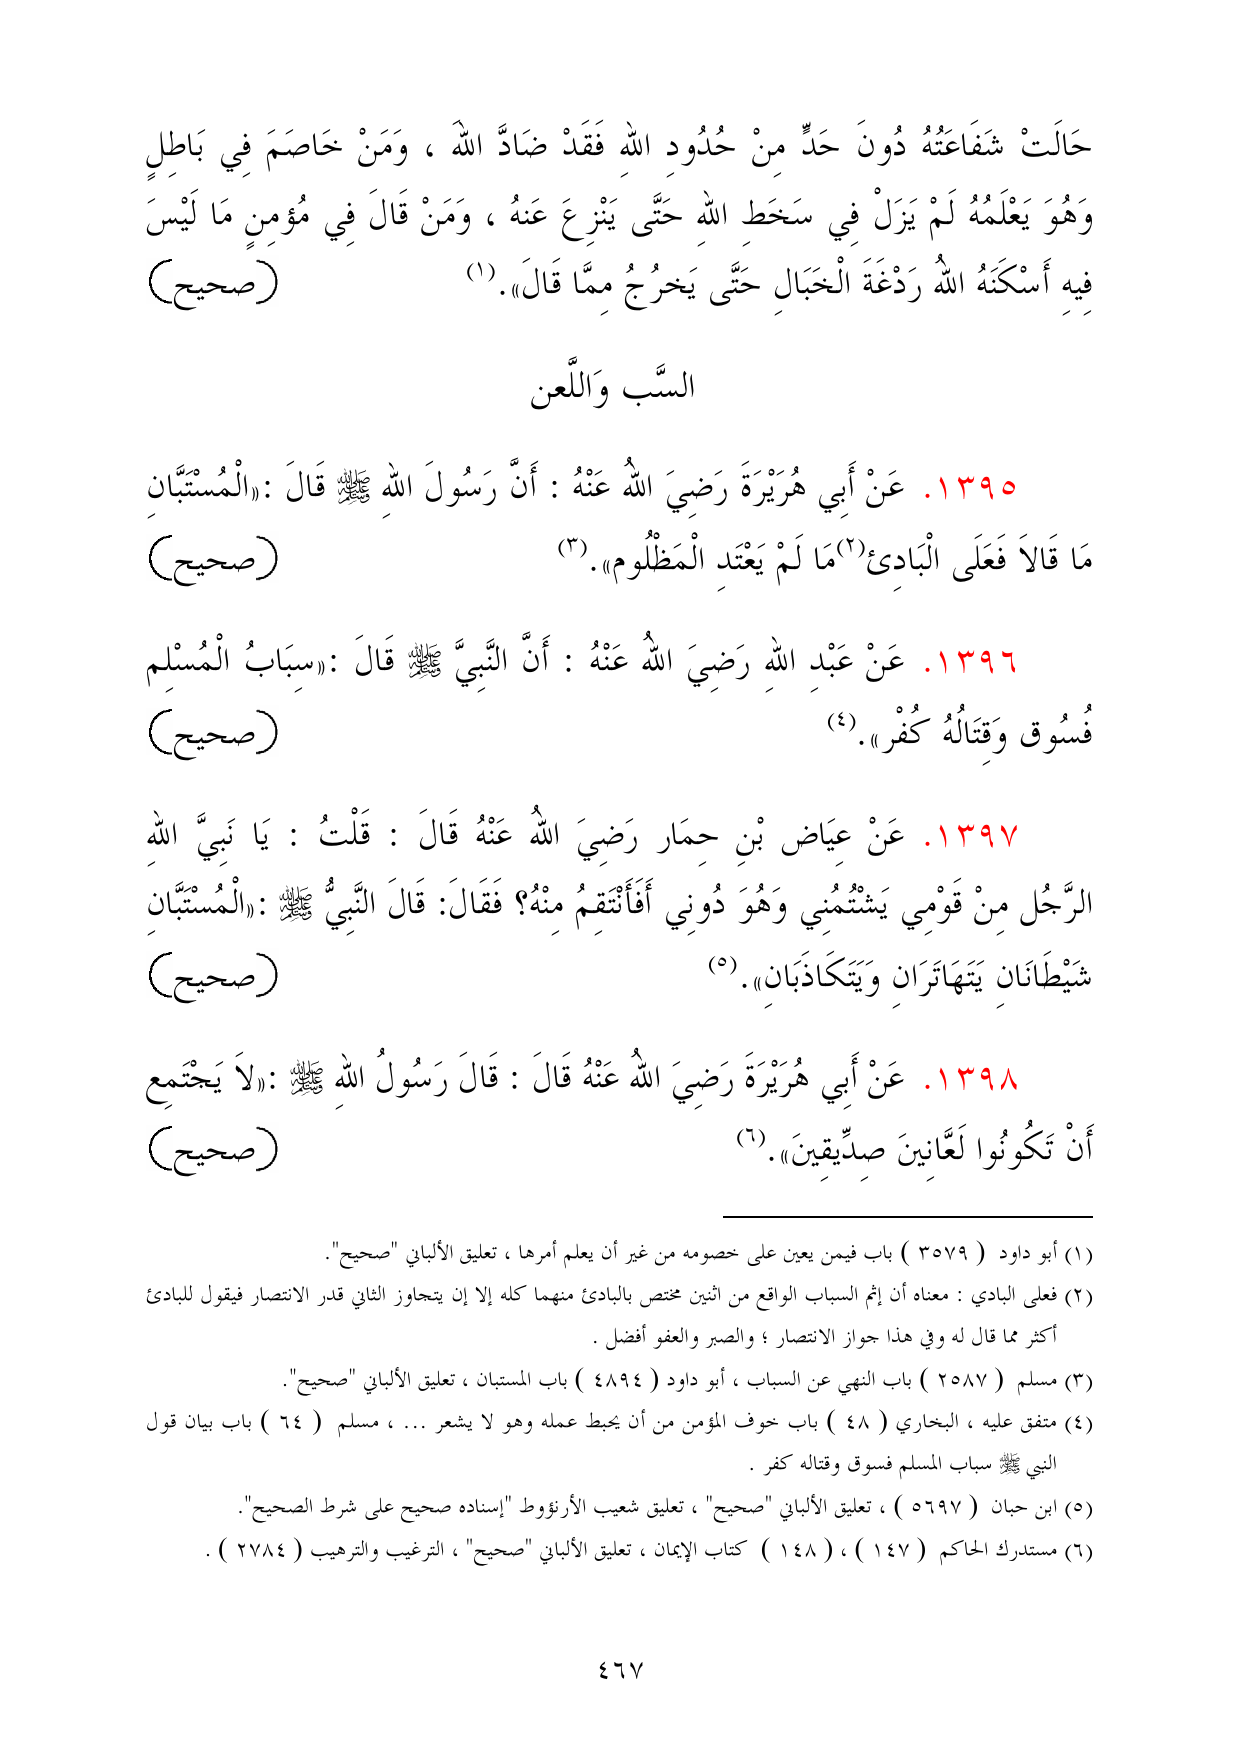 حَالَتْ شَفَاعَتُهُ دُونَ حَدٍّ مِنْ حُدُودِ اللهِ فَقَدْ ضَادَّ اللهَ ، وَمَنْ خَاصَمَ فِي بَاطِلٍ
وَهُوَ يَعْلَمُهُ لَمْ يَزَلْ فِي سَخَطِ اللهِ حَتَّى يَنْزِعَ عَنهُ ، وَمَنْ قَالَ فِي مُؤمِنٍ مَا لَيْسَ
فِيهِ أَسْكَنَهُ اللهُ رَدْغَةَ الْخَبَالِ حَتَّى يَخرُجُ مِمَّا قَالَ». (١) (صحيح)
السَّب وَاللَّعن
١٣٩٥. عَنْ أَبِي هُرَيْرَةَ رَضِيَ اللهُ عَنْهُ : أَنَّ رَسُولَ اللهِ ﷺ قَالَ :«الْمُسْتَبَّانِ
مَا قَالاَ فَعَلَى الْبَادِئ(٢)مَا لَمْ يَعْتَدِ الْمَظْلُوم». (٣) (صحيح)
١٣٩٦. عَنْ عَبْدِ اللهِ رَضِيَ اللهُ عَنْهُ : أَنَّ النَّبِيَّ ﷺ قَالَ :«سِبَابُ الْمُسْلِم
فُسُوق وَقِتَالُهُ كُفْر». (٤) (صحيح)
١٣٩٧. عَنْ عِيَاض بْنِ حِمَار رَضِيَ اللهُ عَنْهُ قَالَ : قَلْتُ : يَا نَبِيَّ اللهِ
الرَّجُل مِنْ قَوْمِي يَشْتُمُنِي وَهُوَ دُونِي أَفَأَنْتَقِمُ مِنْهُ؟ فَقَالَ: قَالَ النَّبِيُّ ﷺ :«الْمُسْتَبَّانِ
شَيْطَانَانِ يَتَهَاتَرَانِ وَيَتَكَاذَبَانِ». (٥) (صحيح)
١٣٩٨. عَنْ أَبِي هُرَيْرَةَ رَضِيَ اللهُ عَنْهُ قَالَ : قَالَ رَسُولُ اللهِ ﷺ :«لاَ يَجْتَمِع
أَنْ تَكُونُوا لَعَّانِينَ صِدِّيقِينَ». (٦) (صحيح)
(١) أبو داود ( ٣٥٧٩ ) باب فيمن يعين على خصومه من غير أن يعلم أمرها ، تعليق الألباني "صحيح".
(٢) فعلى البادي : معناه أن إثم السباب الواقع من اثنين مختص بالبادئ منهما كله إلا إن يتجاوز الثاني قدر الانتصار فيقول للبادئ
أكثر مما قال له وفي هذا جواز الانتصار ؛ والصبر والعفو أفضل .
(٣) مسلم ( ٢٥٨٧ ) باب النهي عن السباب ، أبو داود ( ٤٨٩٤ ) باب المستبان ، تعليق الألباني "صحيح".
(٤) متفق عليه ، البخاري ( ٤٨ ) باب خوف المؤمن من أن يحبط عمله وهو لا يشعر ... ، مسلم ( ٦٤ ) باب بيان قول
النبي ﷺ سباب المسلم فسوق وقتاله كفر .
(٥) ابن حبان ( ٥٦٩٧ ) ، تعليق الألباني "صحيح" ، تعليق شعيب الأرنؤوط "إسناده صحيح على شرط الصحيح".
(٦) مستدرك الحاكم ( ١٤٧ ) ، ( ١٤٨ ) كتاب الإيمان ، تعليق الألباني "صحيح" ، الترغيب والترهيب ( ٢٧٨٤ ) .
٤٦٧